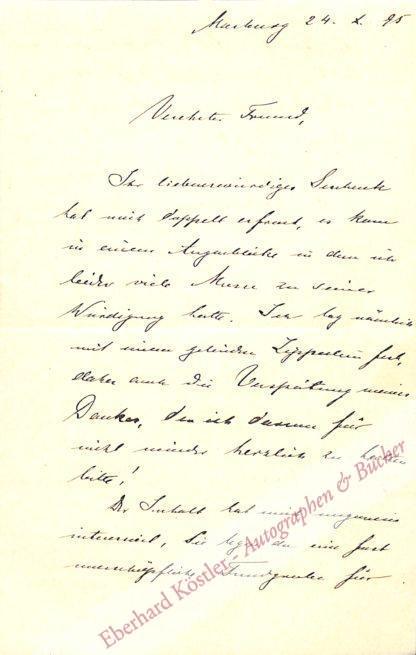 Marburg 24. X. 95
Verehrter Freund,
Ihr liebenswürdiges Geschenk
hat mich doppelt erfreut, es kam
in einem Augenblicke in dem ich
leider viele Musse zu seiner
Würdigung hatte. Ich lag nämlich
mit einem gelinden Zipperlein fest,
daher auch die Verspätung meines
Dankes, den ich darum für
nicht minder herzlich zu halten
bitte!
Der Inhalt hat mich ungemein
interessiert, Sie legen da eine fast
unerschöpfliche Fundgrube für
Eberhard Köstler - Autographen & Bücher